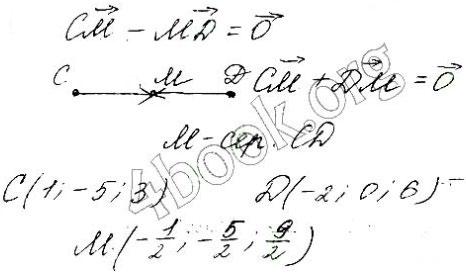 CM⃗ − MD⃗ = 0⃗
C M D CM⃗ + DM⃗ = 0⃗
M - сер. CD
C(1; -5; 3) D(-2; 0; 6)
M(-1/2; -5/2; 9/2)
4book.org